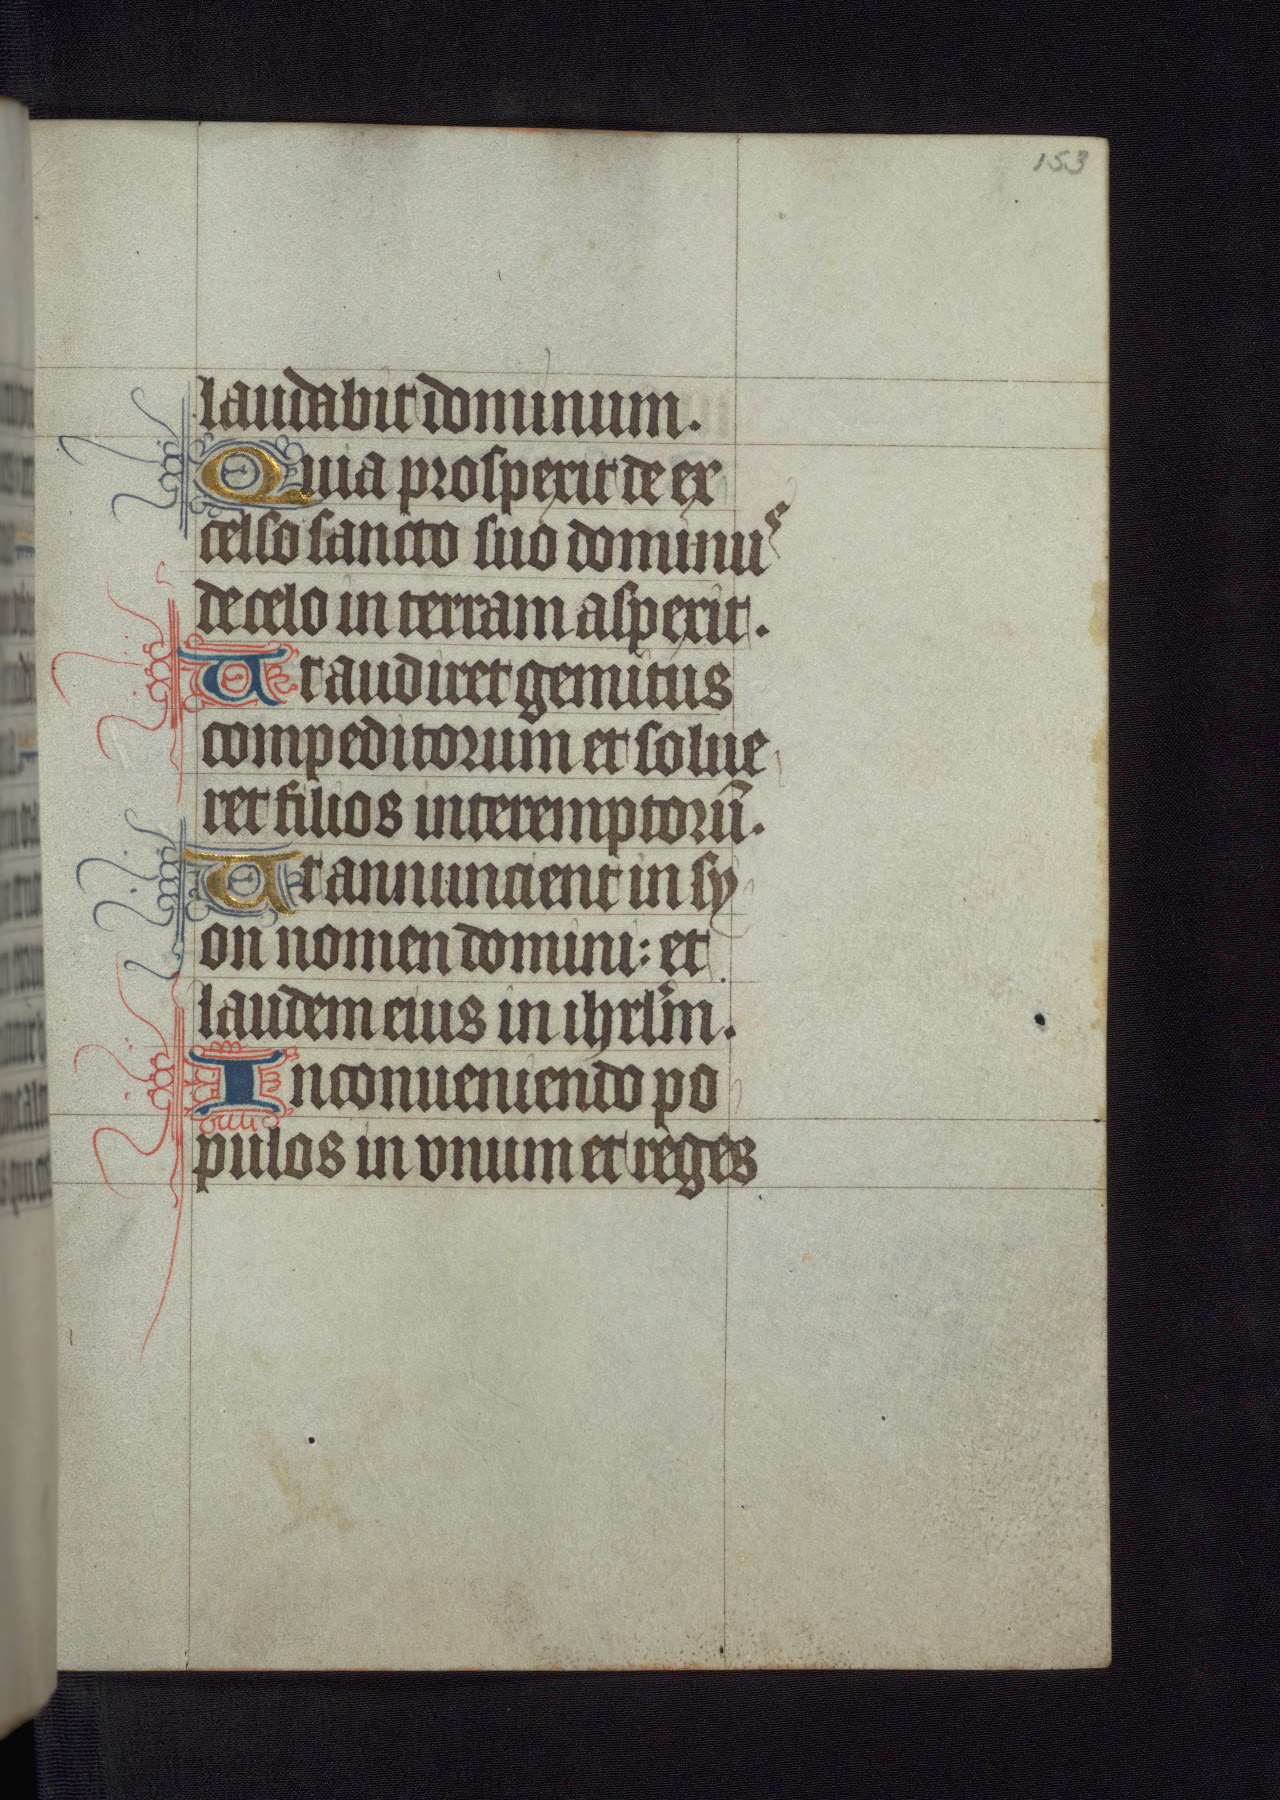 153
laudabit dominum.
Quia prosperit de ex
celso sancto suo dominus
de celo in terram asperit.
Ut audiret gemitus
compeditorum et solue
ret filios interemptorū.
Ut annuncient in sy
on nomen domini: et
laudem eius in ihrlm̄.
In conueniendo po
pulos in vnum et reges